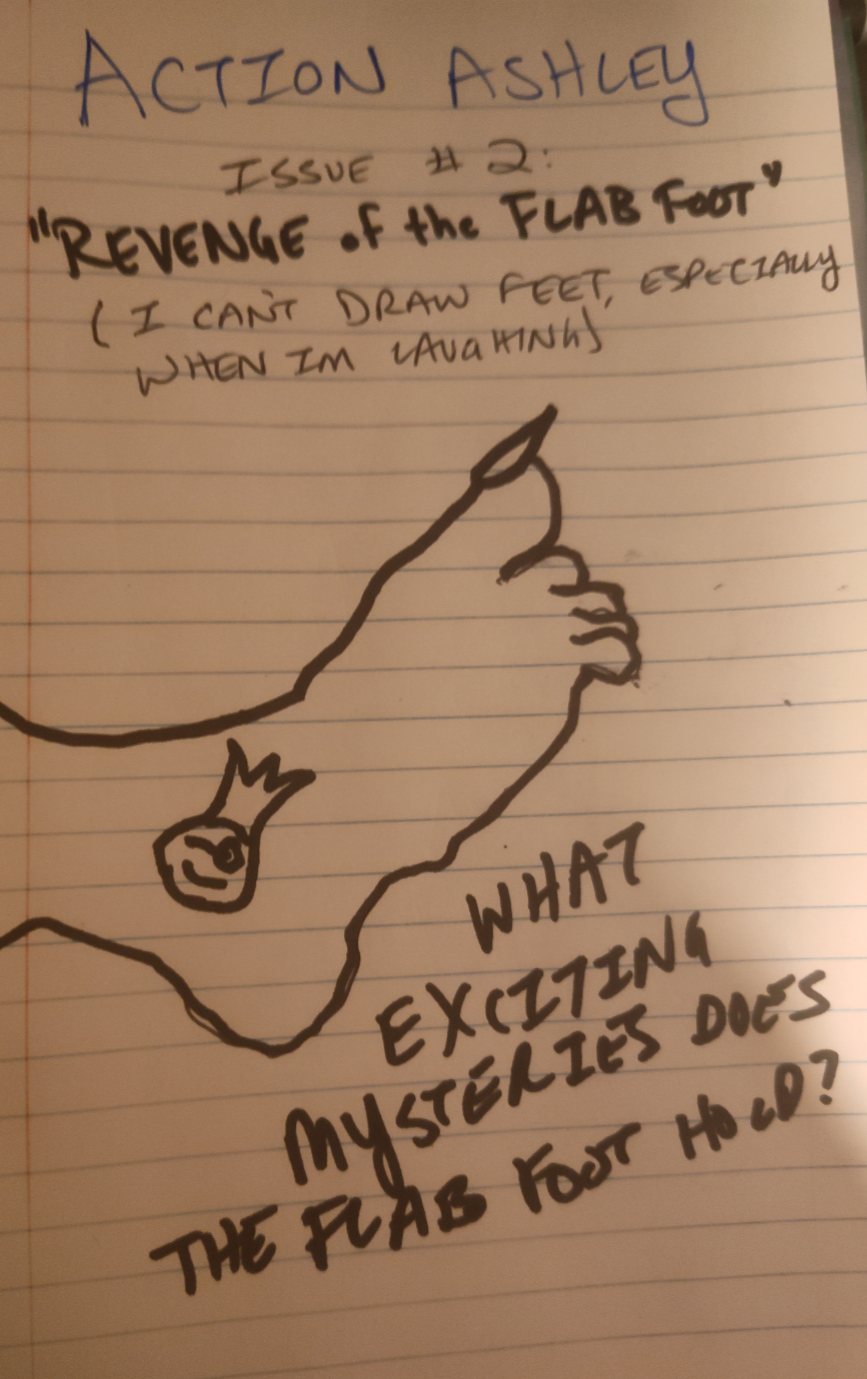 ACTION ASHLEY
ISSUE # 2:
"REVENGE of the FLAB FOOT"
(I CAN'T DRAW FEET, ESPECIALLY
WHEN IM LAUGHING)
WHAT
EXCITING
MYSTERIES DOES
THE FLAB FOOT HOLD?